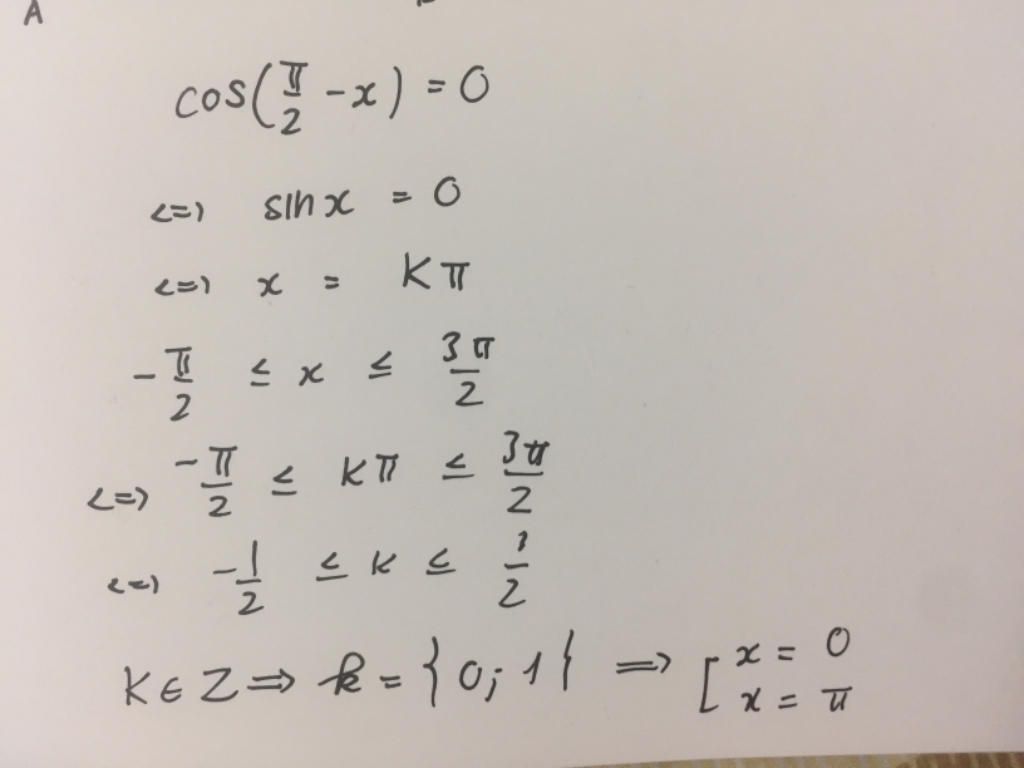 A
cos(π/2 - x) = 0
<=> sin x = 0
<=> x = Kπ
-π/2 ≤ x ≤ 3π/2
<=> -π/2 ≤ kπ ≤ 3π/2
<=> -1/2 ≤ k ≤ 1/2
K ∈ Z ⇒ k = {0; 1} ⇒ [ x = 0
x = π